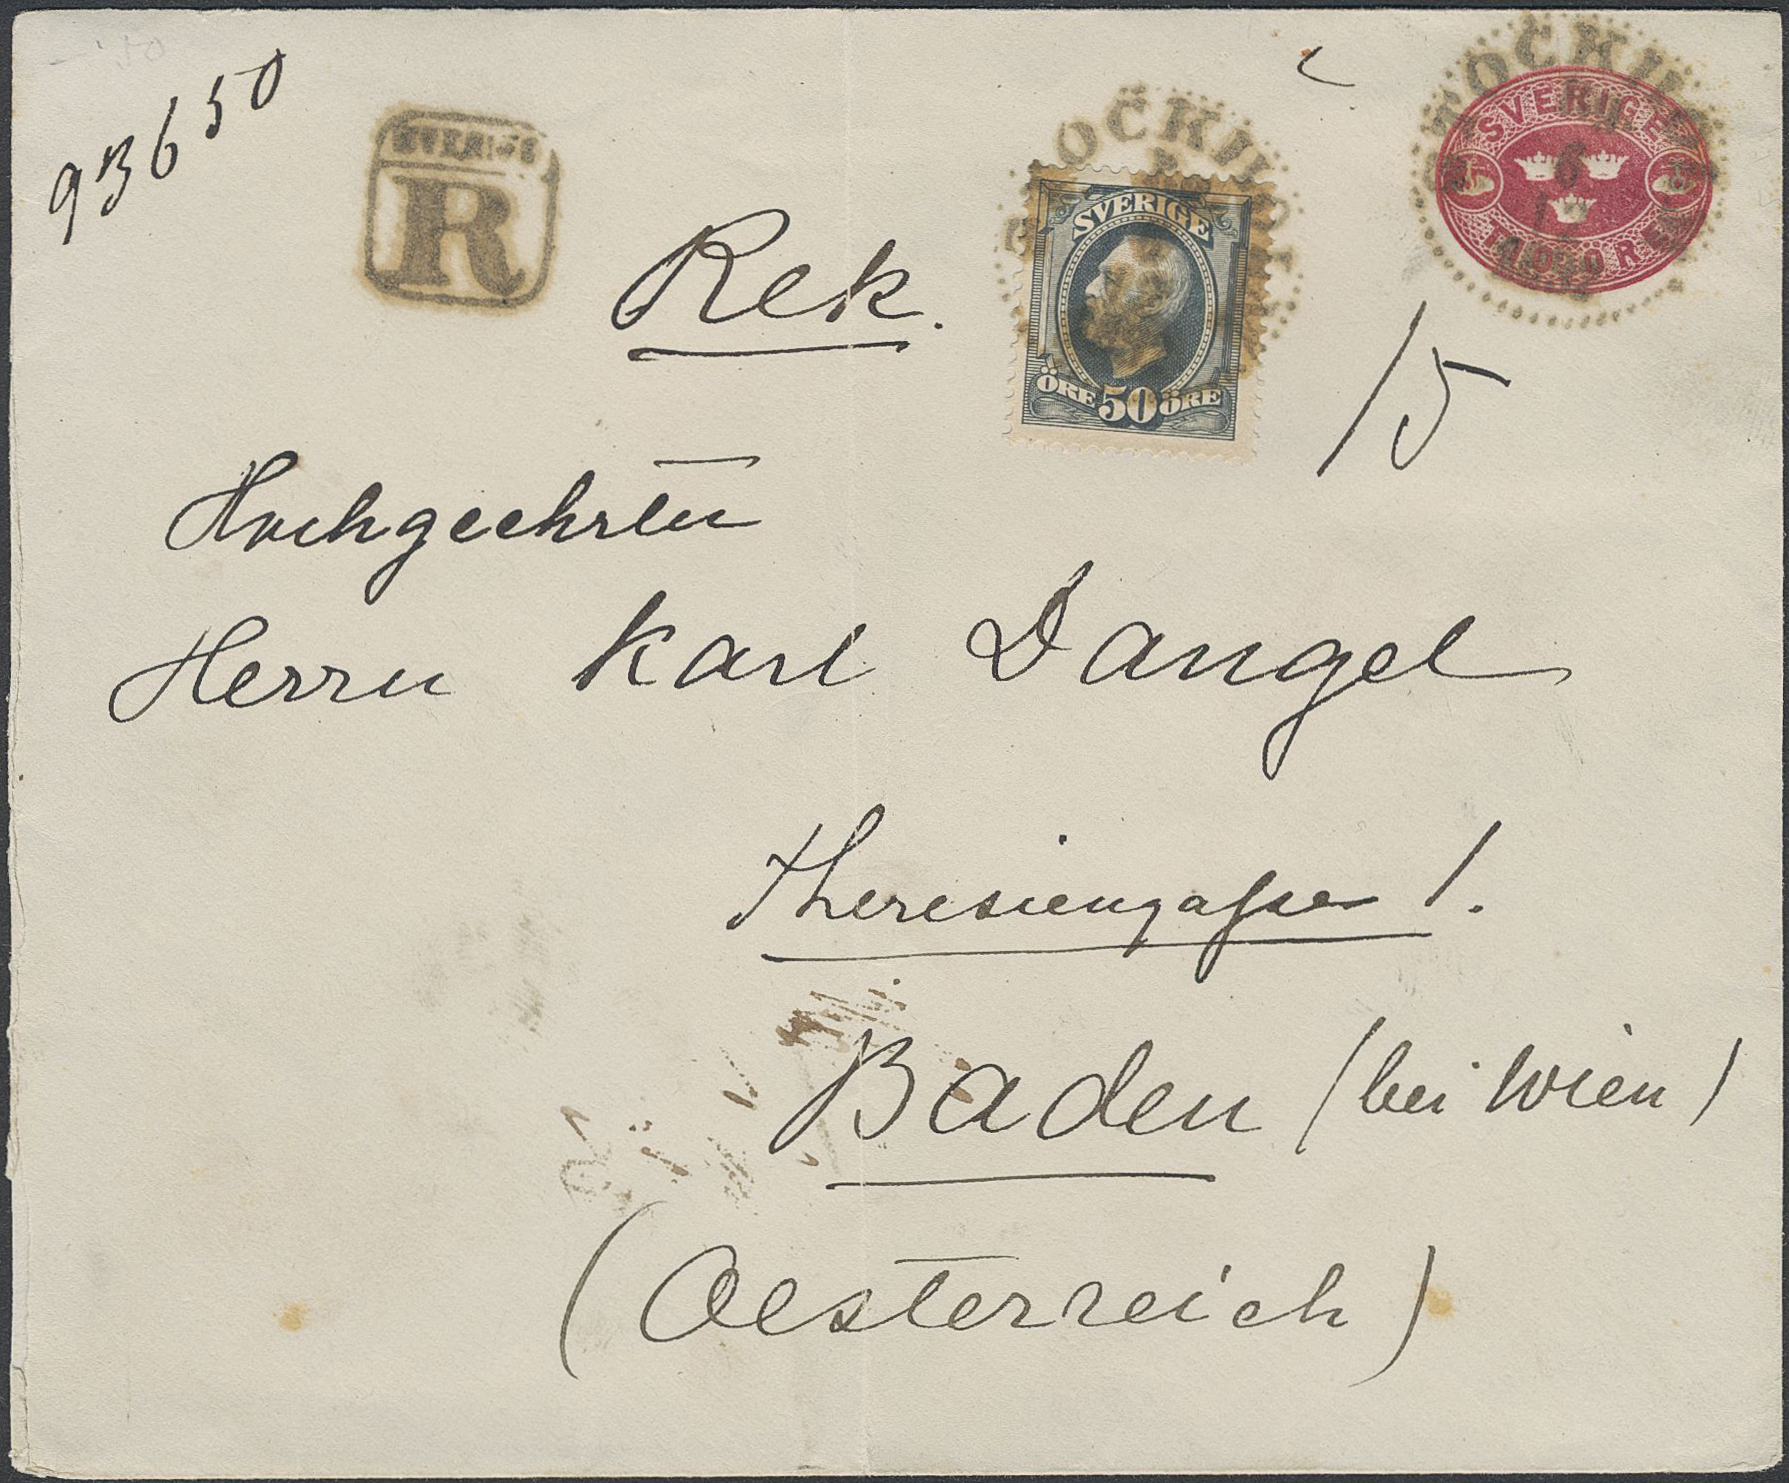 93650
SVERIGE
R
Rek.
STOCKHOLM
SVERIGE
ÖRE 50 ÖRE
STOCKHOLM
6
12
SVERIGE
TIO ÖRE
15
Hochgeehrten
Herrn Karl Dangel
Theresiengasse 1.
Baden (bei Wien)
(Oesterreich)